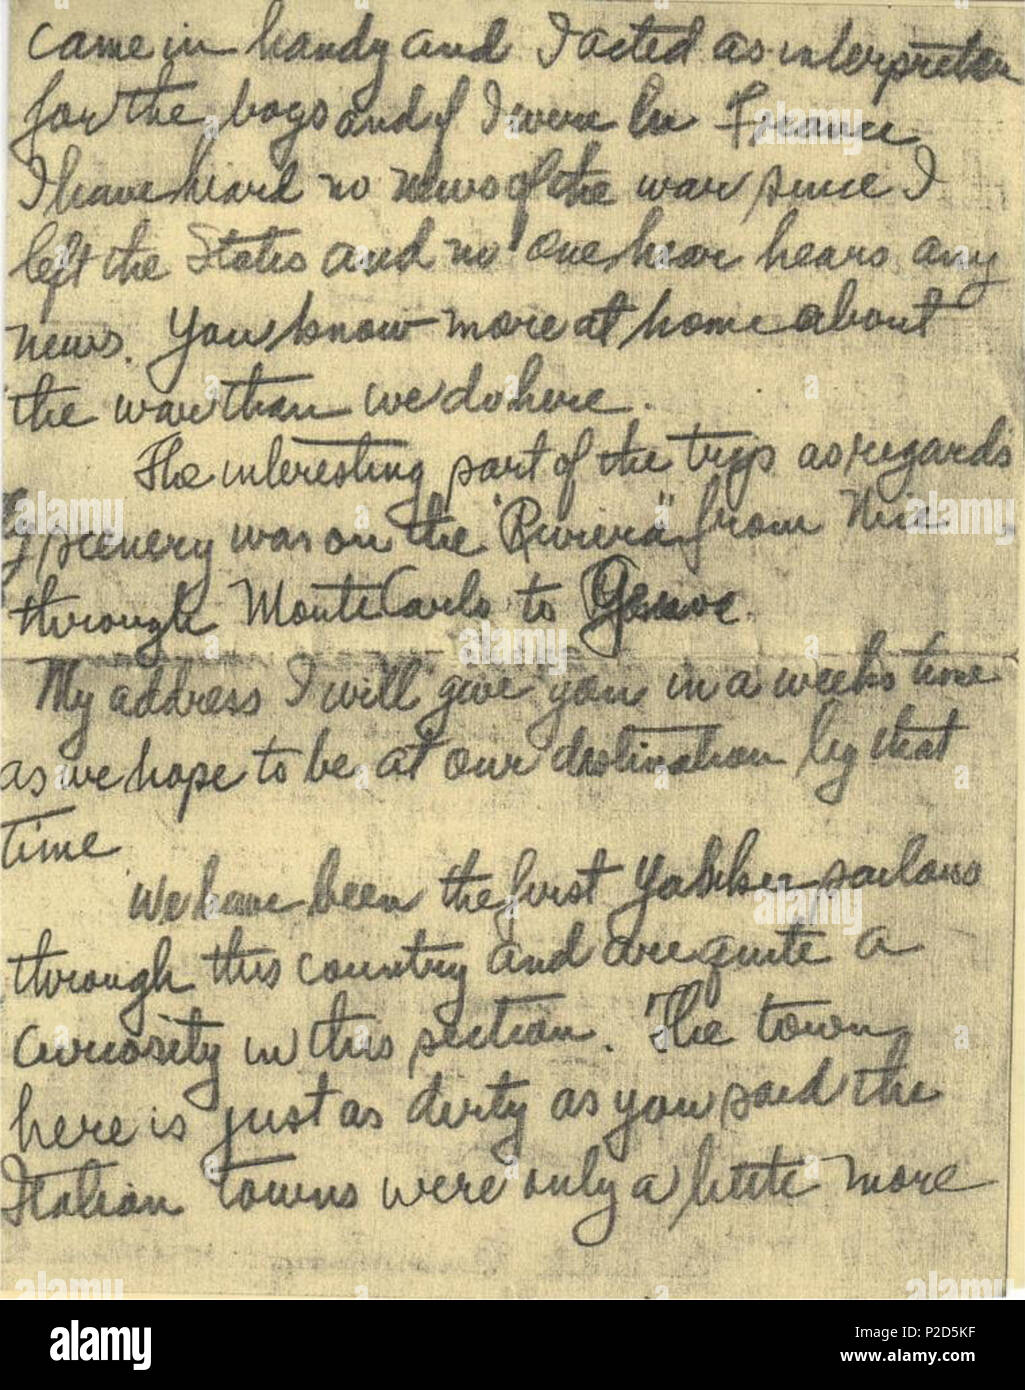 came in handy and I acted as interpreter
for the boys and if I were in France
I have heard no news of the war since I
left the States and no one hear hears any
news. You know more at home about
the war than we do here.
The interesting part of the trip as regards
scenery was on the "Riviera" from Nice
through Monte Carlo to Genoe.
My address I will give you in a weeks time
as we hope to be at our destination by that
time
We have been the first Yankee sailors
through this country and are quite a
curiosity in this section. The town
here is just as dirty as you said the
Italian towns were only a little more
alamy
Image ID: P2D5KF
www.alamy.com